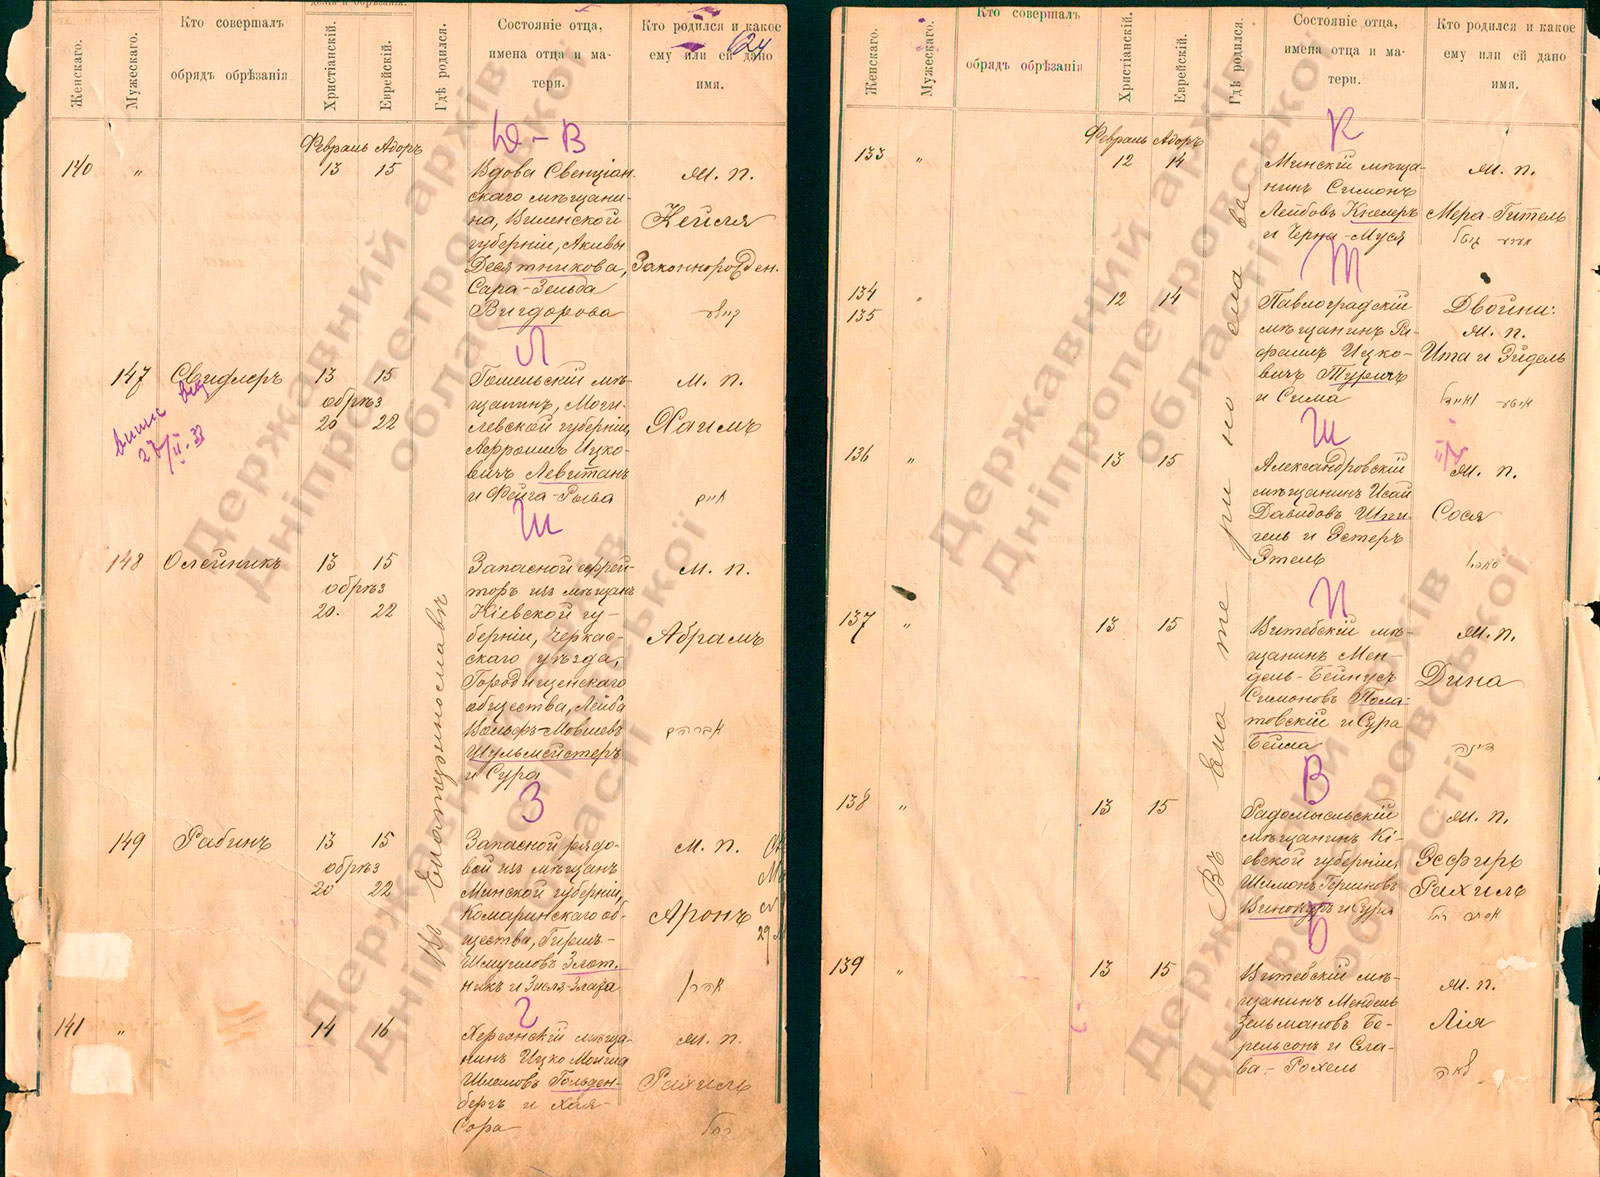 Женскаго.
Мужескаго.
Кто совершалъ
обрядъ обрѣзанія
Христіанскій.
Еврейскій.
Гдѣ родился.
Состояніе отца,
имена отца и ма-
тери.
Кто родился и какое
ему или ей дано
имя.
Февраль Адоръ
Д-В
140 „ 13 15
Вдова Свенціан
скаго мѣщани-
на, Виленской
губерніи, Акивы
Десятникова,
Сара-Зельда
Вигдорова
М. п.
Кейля
Законнорожден.
Л
147 13 15
обрѣз
20 22
27/II.33
Гомельскій мѣ-
щанинъ, Моги-
левской губерніи,
Ицко-
вичъ Левитанъ
и Фейга-Рыва
М. п.
Хаимъ
חיים
Ш
148 Олейникъ 13 15
обрѣз
20. 22
Запасной ефрей-
торъ изъ мѣщан
Кіевской гу-
берніи, Черкас-
скаго уѣзда,
Городищенскаго
общества, Лейба
Вольфъ-Мовшевъ
Шульмейстеръ
и Сура
М. п.
Абрамъ
אברהם
Въ Екатеринославѣ
З
149 Рабинъ 13 15
обрѣз
20 22
Запасной рядо-
вой изъ мѣщанъ
Минской губерніи,
Комаринскаго об-
щества, Гиршъ-
Шмуиловъ Злот-
никъ и Зисля-Злата
М. п.
Аронъ
אהרן
Г
141 „ 14 16
Херсонскій мѣща-
нинъ Ицко Мойша
Шлемовъ Гольден-
бергъ и Хая-
Сора
М. п.
Рахиль
רחל
Женскаго.
Мужескаго.
Кто совершалъ
обрядъ обрѣзанія
Христіанскій.
Еврейскій.
Гдѣ родился.
Состояніе отца,
имена отца и ма-
тери.
Кто родился и какое
ему или ей дано
имя.
Февраль Адоръ
К
133 „ 12 14
Минскій мѣща-
нинъ Симонъ
Лейбовъ Кнелеръ
и Черна-Муся
М. п.
Мера-Гитель
Т
134 „ 12 14
135
Павлоградскій
мѣщанинъ Ра-
фаилъ Ицко-
вичъ Туричъ
и Сима
Двойни:
М. п.
Ита и Эйдель
Ш
136 „ 13 15
Александровскій
мѣщанинъ Исай
Давидовъ Шпи-
гель и Эстеръ
Этель
М. п.
Сося
П
137 „ 13 15
Витебскій мѣ-
щанинъ Мен-
дель-Бейнусъ
Симоновъ Пола-
товскій и Сура
Бейла
М. п.
Дина
דינה
В
138 „ 13 15
Радомысльскій
мѣщанинъ Кі-
евской губерніи,
Шимонъ Гершковъ
Винокуръ и Сура
М. п.
Эсфирь
Рахиль
אסתר רחל
Б
139 „ 13 15
Витебскій мѣ-
щанинъ Мендель
Зельмановъ Бе-
рельсонъ и Сла-
ва-Рохель
М. п.
Лія
לאה
Державний архів
Дніпропетровської
області